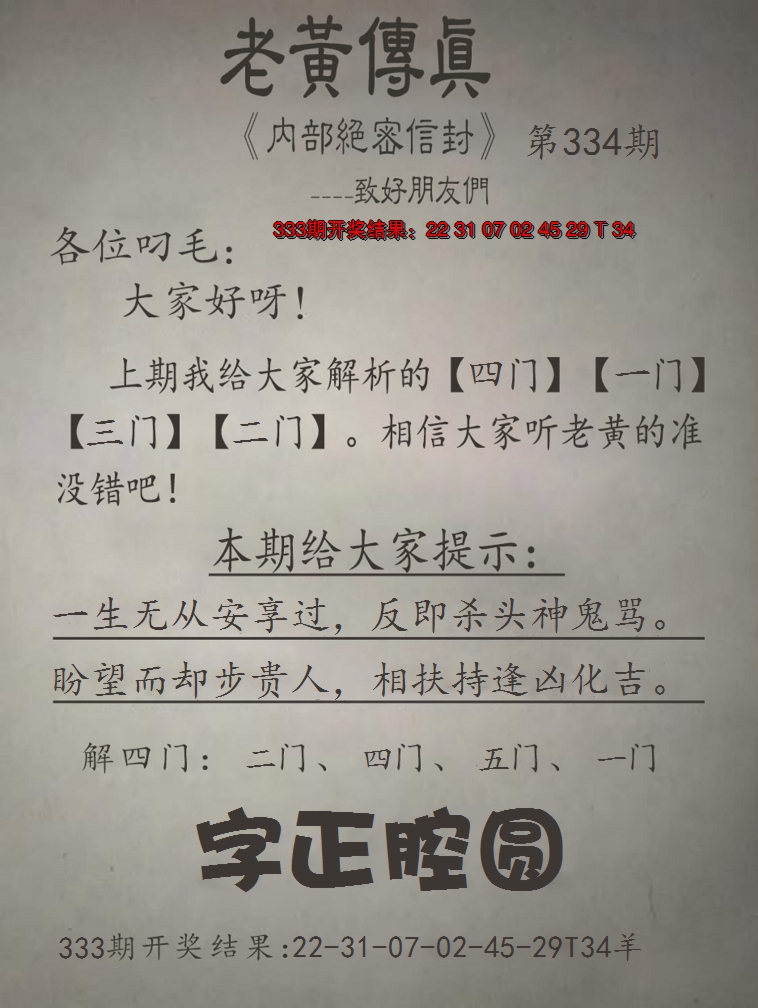 老黃傳真
《内部絕密信封》 第334期
----致好朋友們
333期开奖结果：22 31 07 02 45 29 T 34
各位叼毛：
大家好呀！
上期我给大家解析的【四门】【一门】
【三门】【二门】。相信大家听老黄的准
没错吧！
本期给大家提示：
一生无从安享过，反即杀头神鬼骂。
盼望而却步贵人，相扶持逢凶化吉。
解四门： 二门、 四门、 五门、 一门
字正腔圆
333期开奖结果:22-31-07-02-45-29T34羊